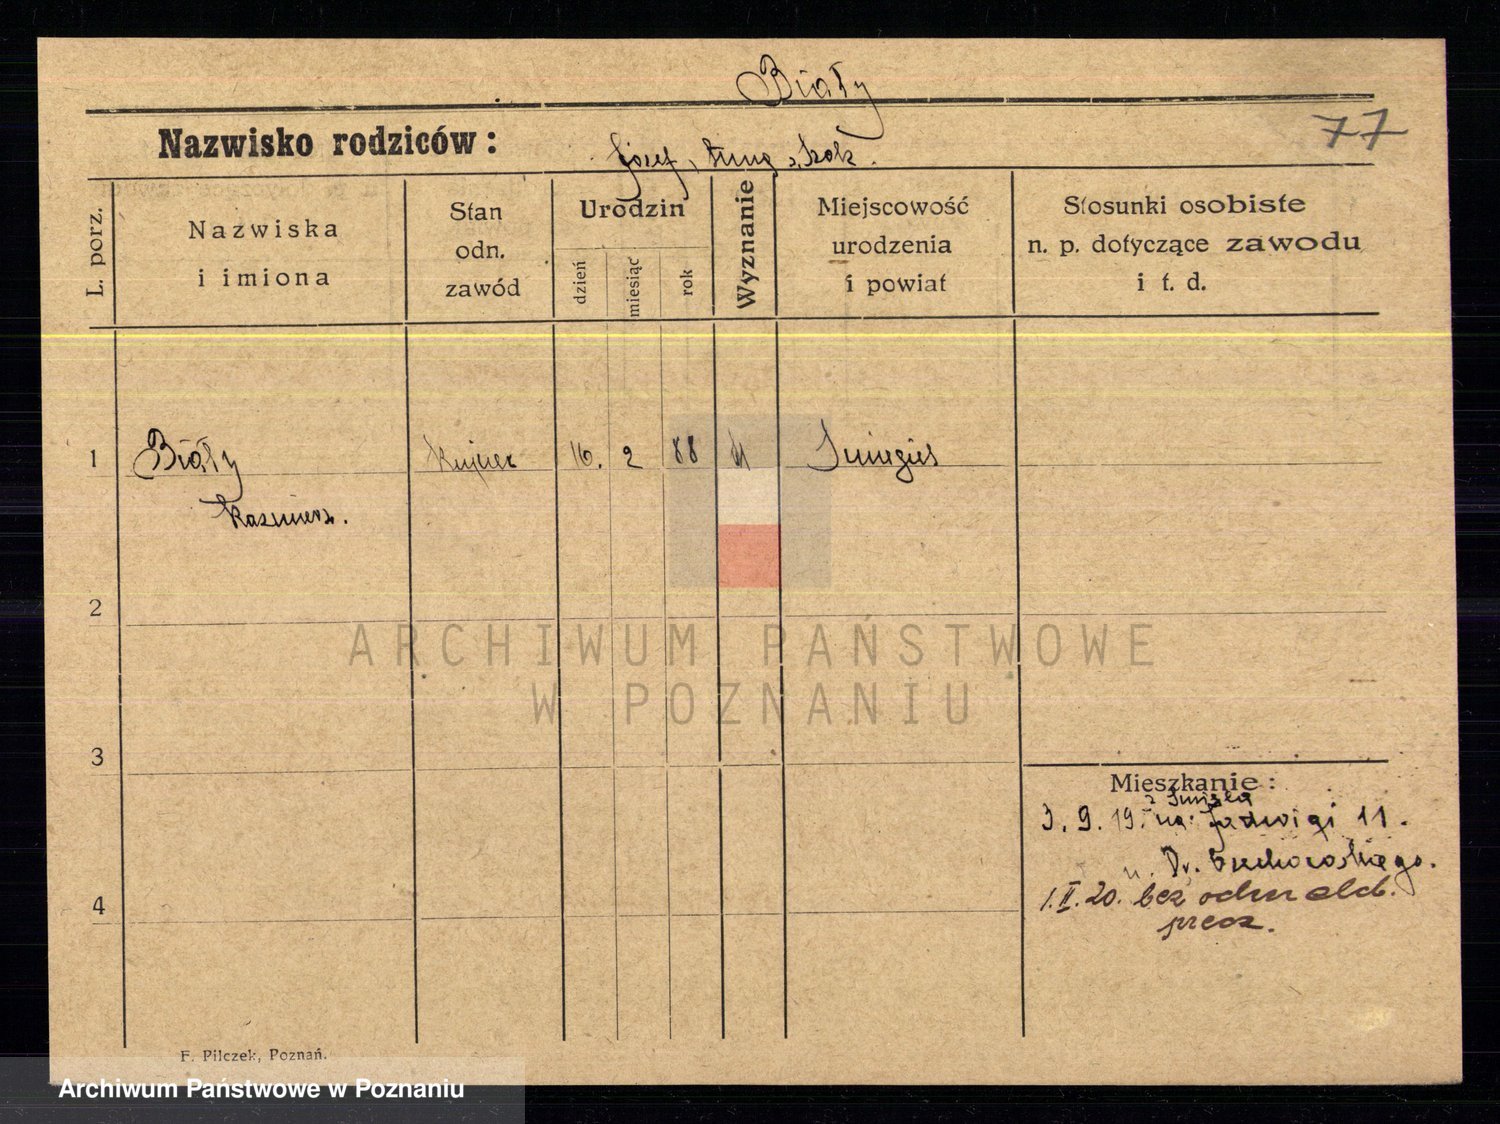 Biały
Nazwisko rodziców:
77
Józef,
L. porz.
Nazwiska
i imiona
Stan
odn.
zawód
Urodzin
dzień
miesiąc
rok
Wyznanie
Miejscowość
urodzenia
i powiat
Stosunki osobiste
n. p. dotyczące zawodu
i t. d.
1
Biały
Kazimierz.
16. 2 88
2
ARCHIWUM PAŃSTWOWE
W POZNANIU
3
Mieszkanie:
3. 9. 19. Jadwigi 11.
u. Dr.
4
1.II.20. bez
F. Pilczek, Poznań.
Archiwum Państwowe w Poznaniu